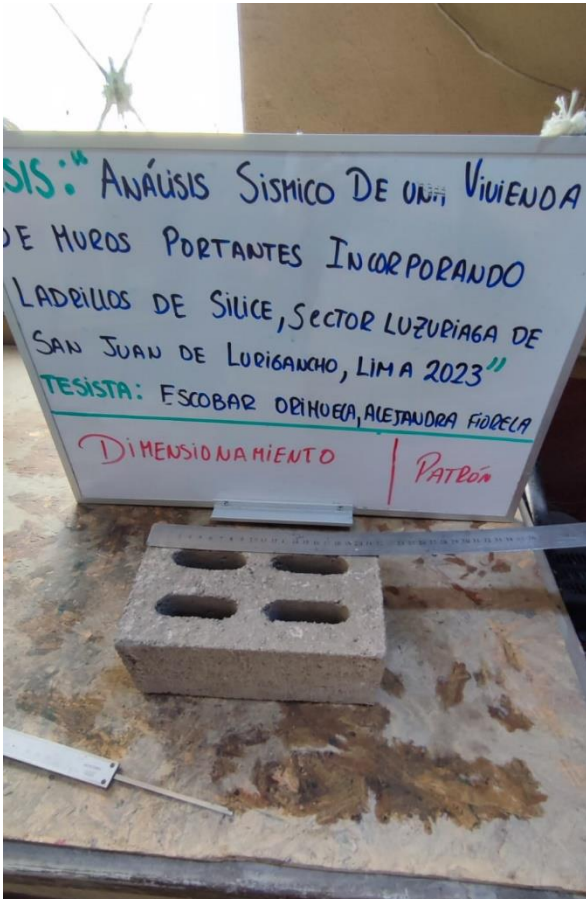 SIS:" ANÁLISIS SISMICO DE UNA VIVIENDA
DE MUROS PORTANTES INCORPORANDO
LADRILLOS DE SILICE, SECTOR LUZURIAGA DE
SAN JUAN DE LURIGANCHO, LIMA 2023"
TESISTA: ESCOBAR ORIHUELA, ALEJANDRA FIORELA
DIMENSIONAMIENTO | PATRÓN